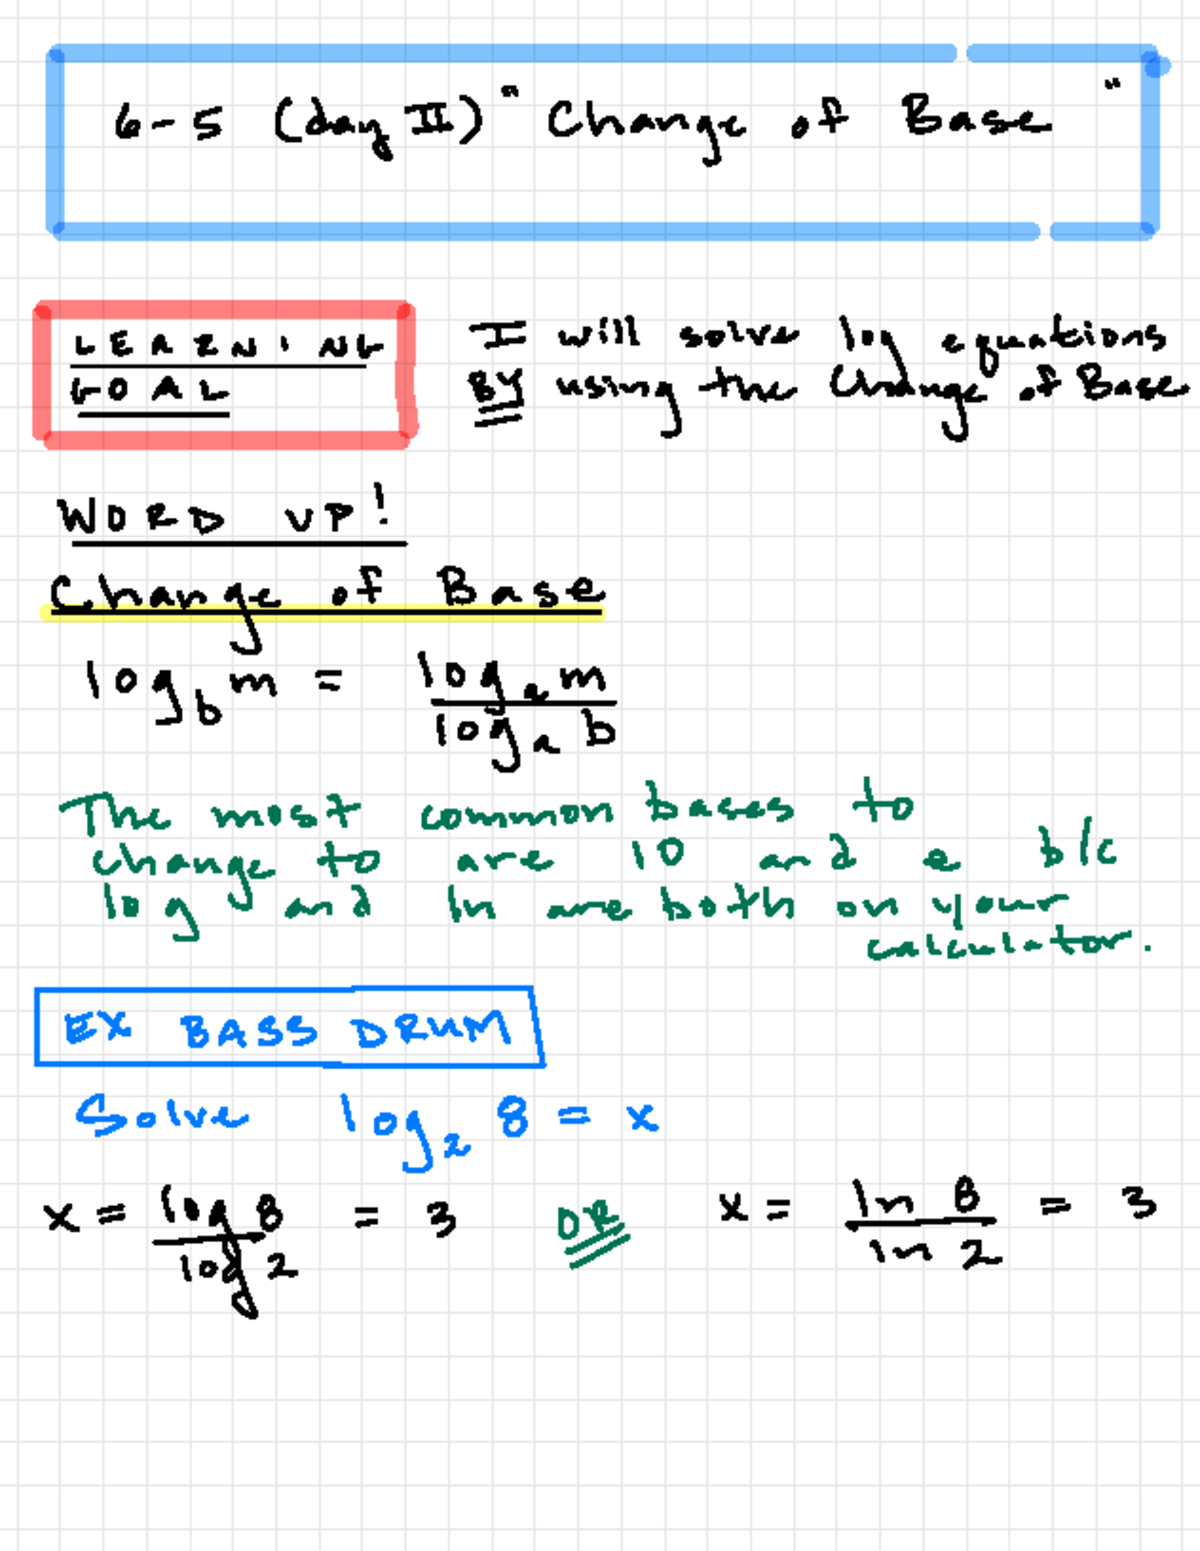 6-5 (day II) "Change of Base"
LEARNING
GOAL
I will solve log equations
BY using the Change of Base
WORD UP!
Change of Base
log_b m = log_a m / log_a b
The most common bases to
change to are 10 and e b/c
log and ln are both on your
calculator.
EX BASS DRUM
Solve log_2 8 = x
x = log 8 / log 2 = 3 OR x = ln 8 / ln 2 = 3